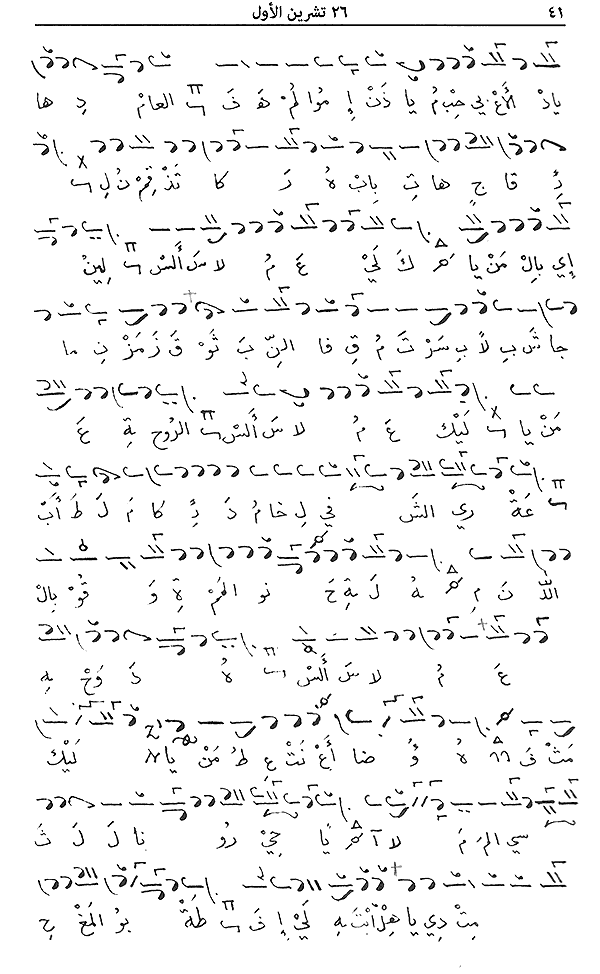 ٤١ ٢٦ تشرين الأول
يادْ الأَعْ بي حِبْ مُ يا ذَنْ إِ مُوا لُمْ هَ فَ العامْ دِ ها
ئِ قا جٍ ها تِ بابْ هُ رَ كا تَذْ قِمْ نُ لِ
إي بِالْ مَنْ يا كَ لَيْ عَ مُ لا سَ أَلسْ لِينْ
جا شَ بِ لاً بِ سَرْ تَ مُ قِ فا النِّ بَ ثَوْ قَ زَ مَزْ نِ ما
مَنْ يا لَيْكَ عَ مُ لا سَ أَلسْ الرُّوحْ ةِ عَ
عَةْ ري الشَ في لِ خامْ دَ ئِ كا مَ لَ طَ أَبْ
الله نَ مِ هُ لَ ةِ حَ نو المْ ةِ وَ قُوْ بالْ
عَ مُ لا سَ أَلسْ هُ دَ وَحْ يهِ
مَثْ فَ هُ ؤُ ضا أَعْ نَتْ عِ طُ مَنْ يا لَيْكَ
سي المَ مَ لا آ يًا حِيْ رُو نا لَ لَ ثَ
مِتْ دِي يا هِلْ ابْتَ هِ لَيْ إِ فَ طَةْ بُو المَغْ حِ